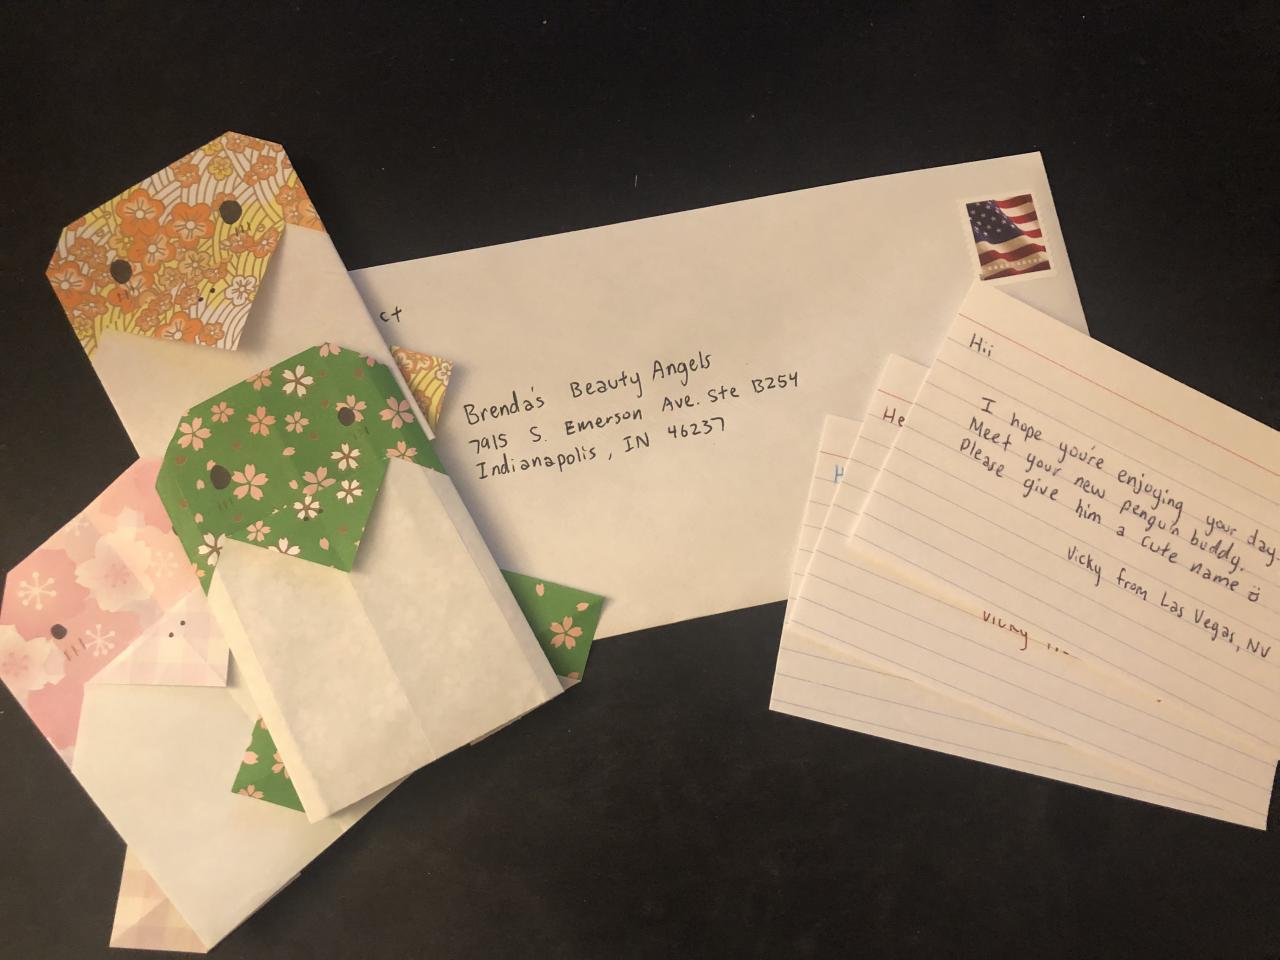 ct
Brenda's Beauty Angels
7915 S. Emerson Ave. Ste B254
Indianapolis, IN 46237
Hii
I hope you're enjoying your day.
Meet your new penguin buddy.
Please give him a cute name
Vicky from Las Vegas, NV
He
H
Vicky